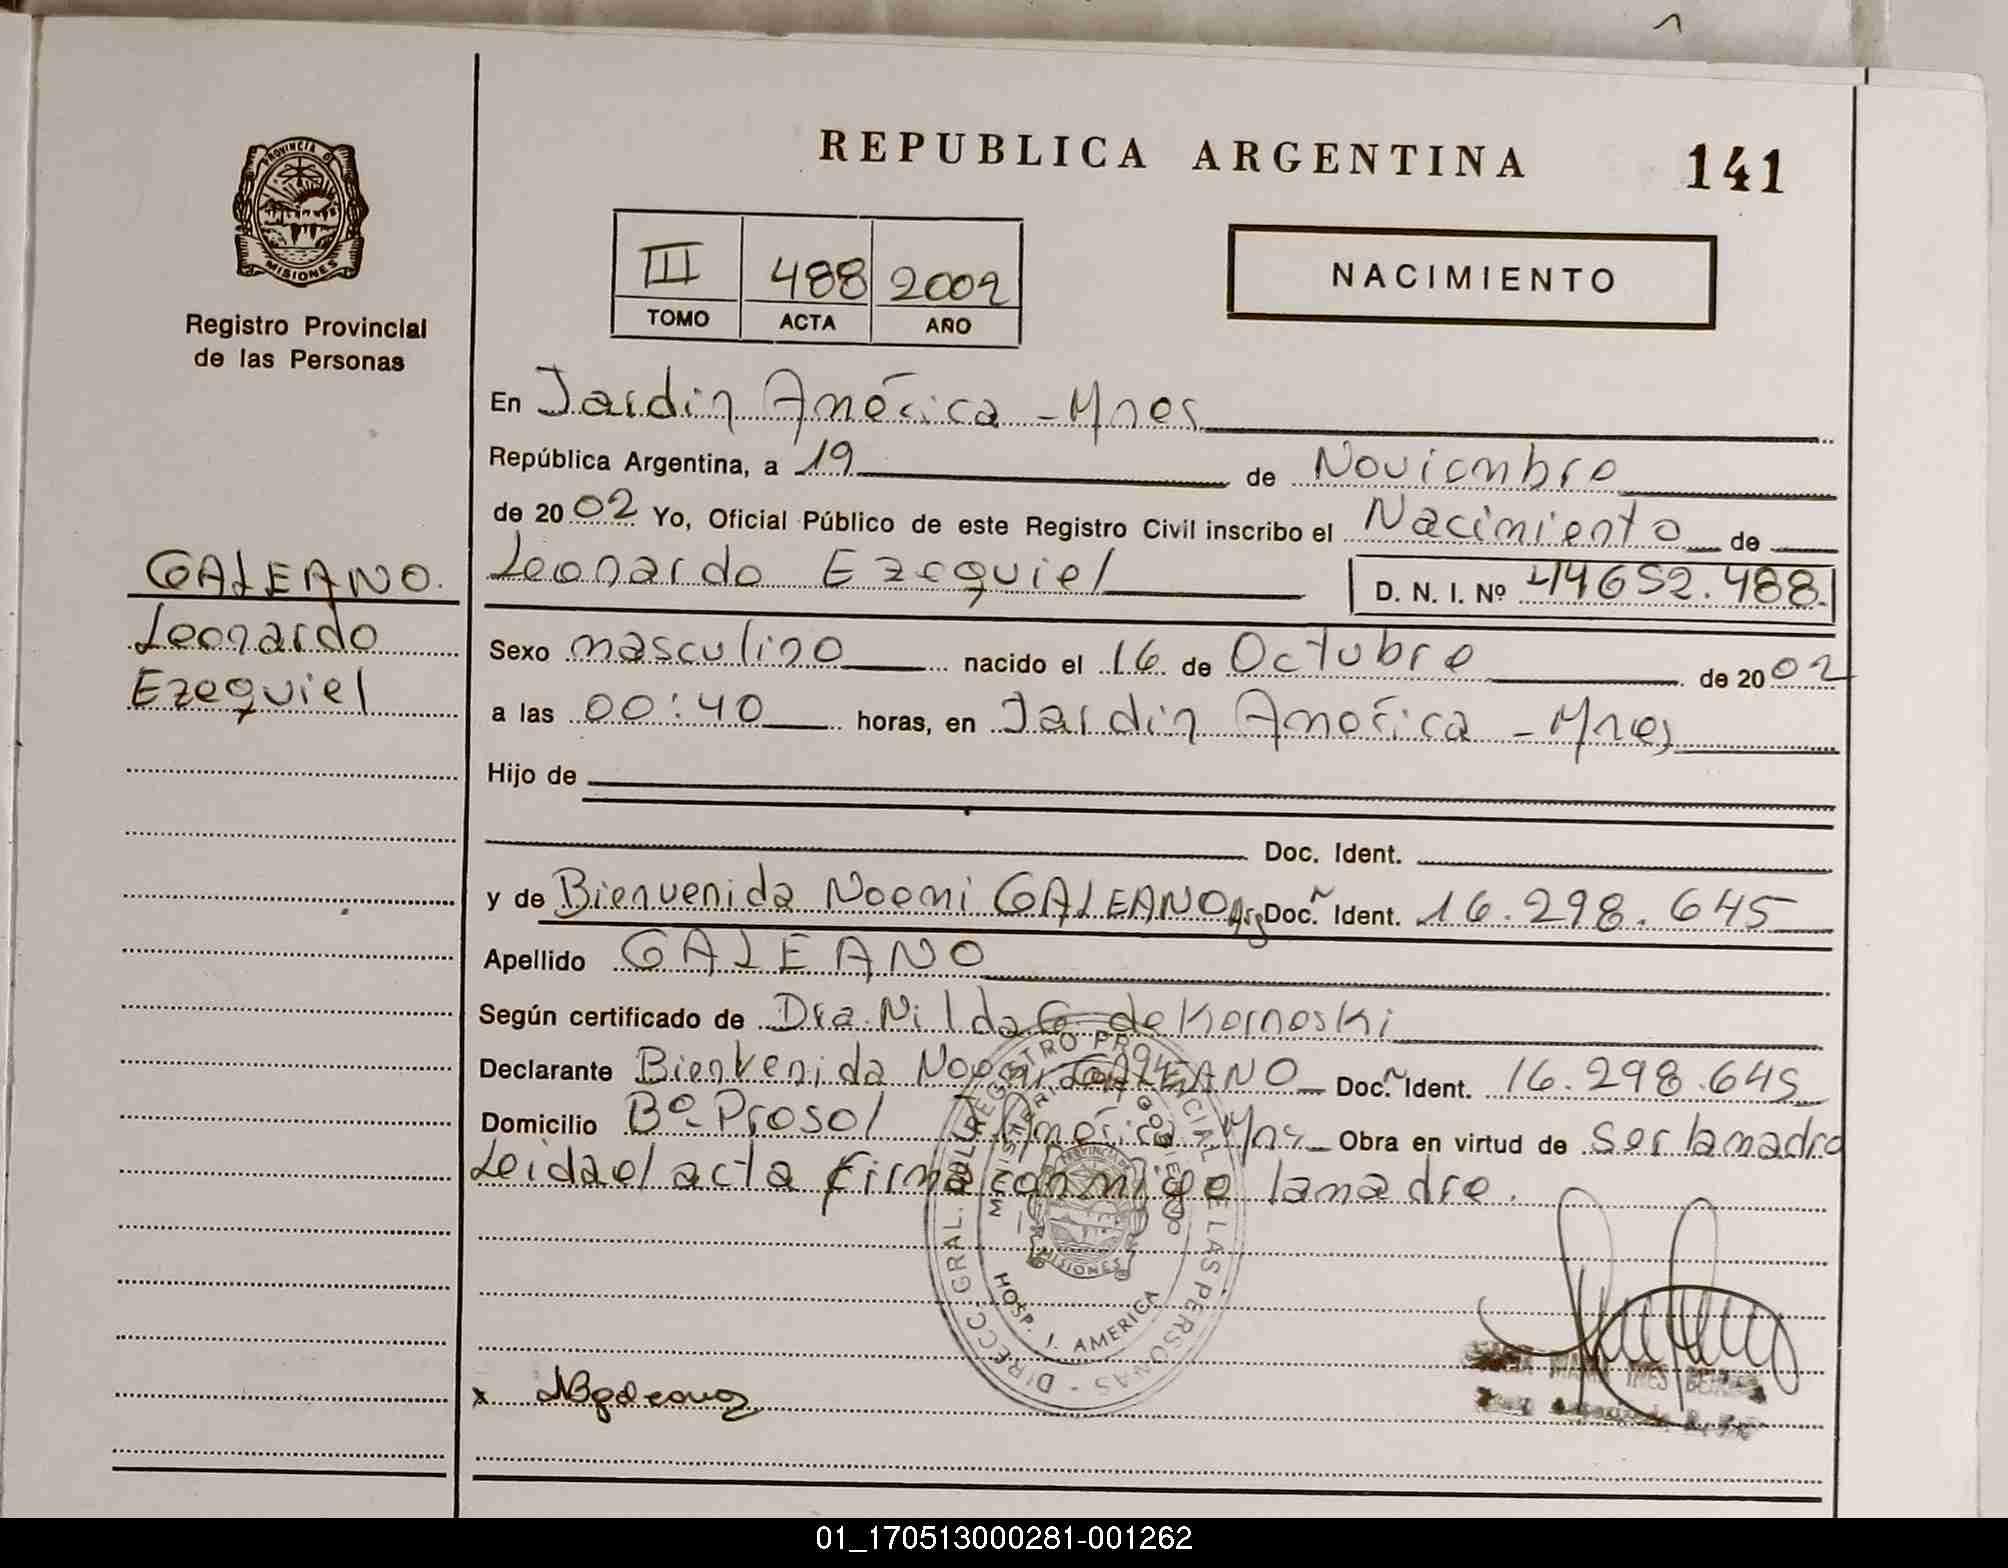 REPUBLICA ARGENTINA
141
PROVINCIA DE
MISIONES
Registro Provincial
de las Personas
III 488 2002
TOMO ACTA AÑO
NACIMIENTO
En Jardin América - Mnes
República Argentina, a 19 de Noviembre
de 2002 Yo, Oficial Público de este Registro Civil inscribo el Nacimiento de
Leonardo Ezequiel D. N. I. Nº 44652.488.
GALEANO.
Leonardo
Ezequiel
Sexo masculino nacido el 16 de Octubre de 2002
a las 00:40 horas, en Jardin América - Mnes
Hijo de
Doc. Ident.
y de Bienvenida Noemi GALEANO Arg Doc. Ident. 16.298.645
Apellido GALEANO
Según certificado de Dra. Nilda G. de Kornoski
Declarante Bienvenida Noemi GALEANO Doc. Ident. 16.298.645
Domicilio Bº Prosol J. América Mns Obra en virtud de ser la madre
Leida el acta firma conmigo la madre.
DIRECC. GRAL. DEL REGISTRO PROVINCIAL DE LAS PERSONAS
MINISTERIO DE GOBIERNO
MISIONES
HOSP. J. AMERICA
x NBgaleano
MARIA INES
01_170513000281-001262